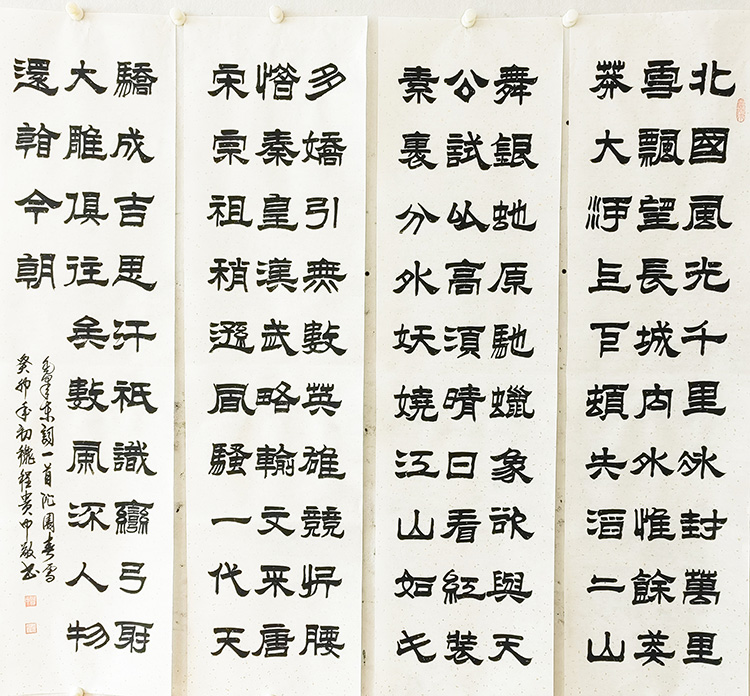 北國風光千里冰封萬里
雪飄望長城內外惟餘莽
莽大河上下頓失滔二山
舞銀蛇原馳蠟象欲與天
公試比高須晴日看紅裝
素裹分外妖嬈江山如此
多嬌引無數英雄競折腰
惜秦皇漢武略輸文采唐
宋宗祖稍遜風騷一代天
驕成吉思汗祗識彎弓射
大雕俱往矣數風流人物
還看今朝
毛澤東詞一首沁園春雪
癸卯年初龝程貴申敬書